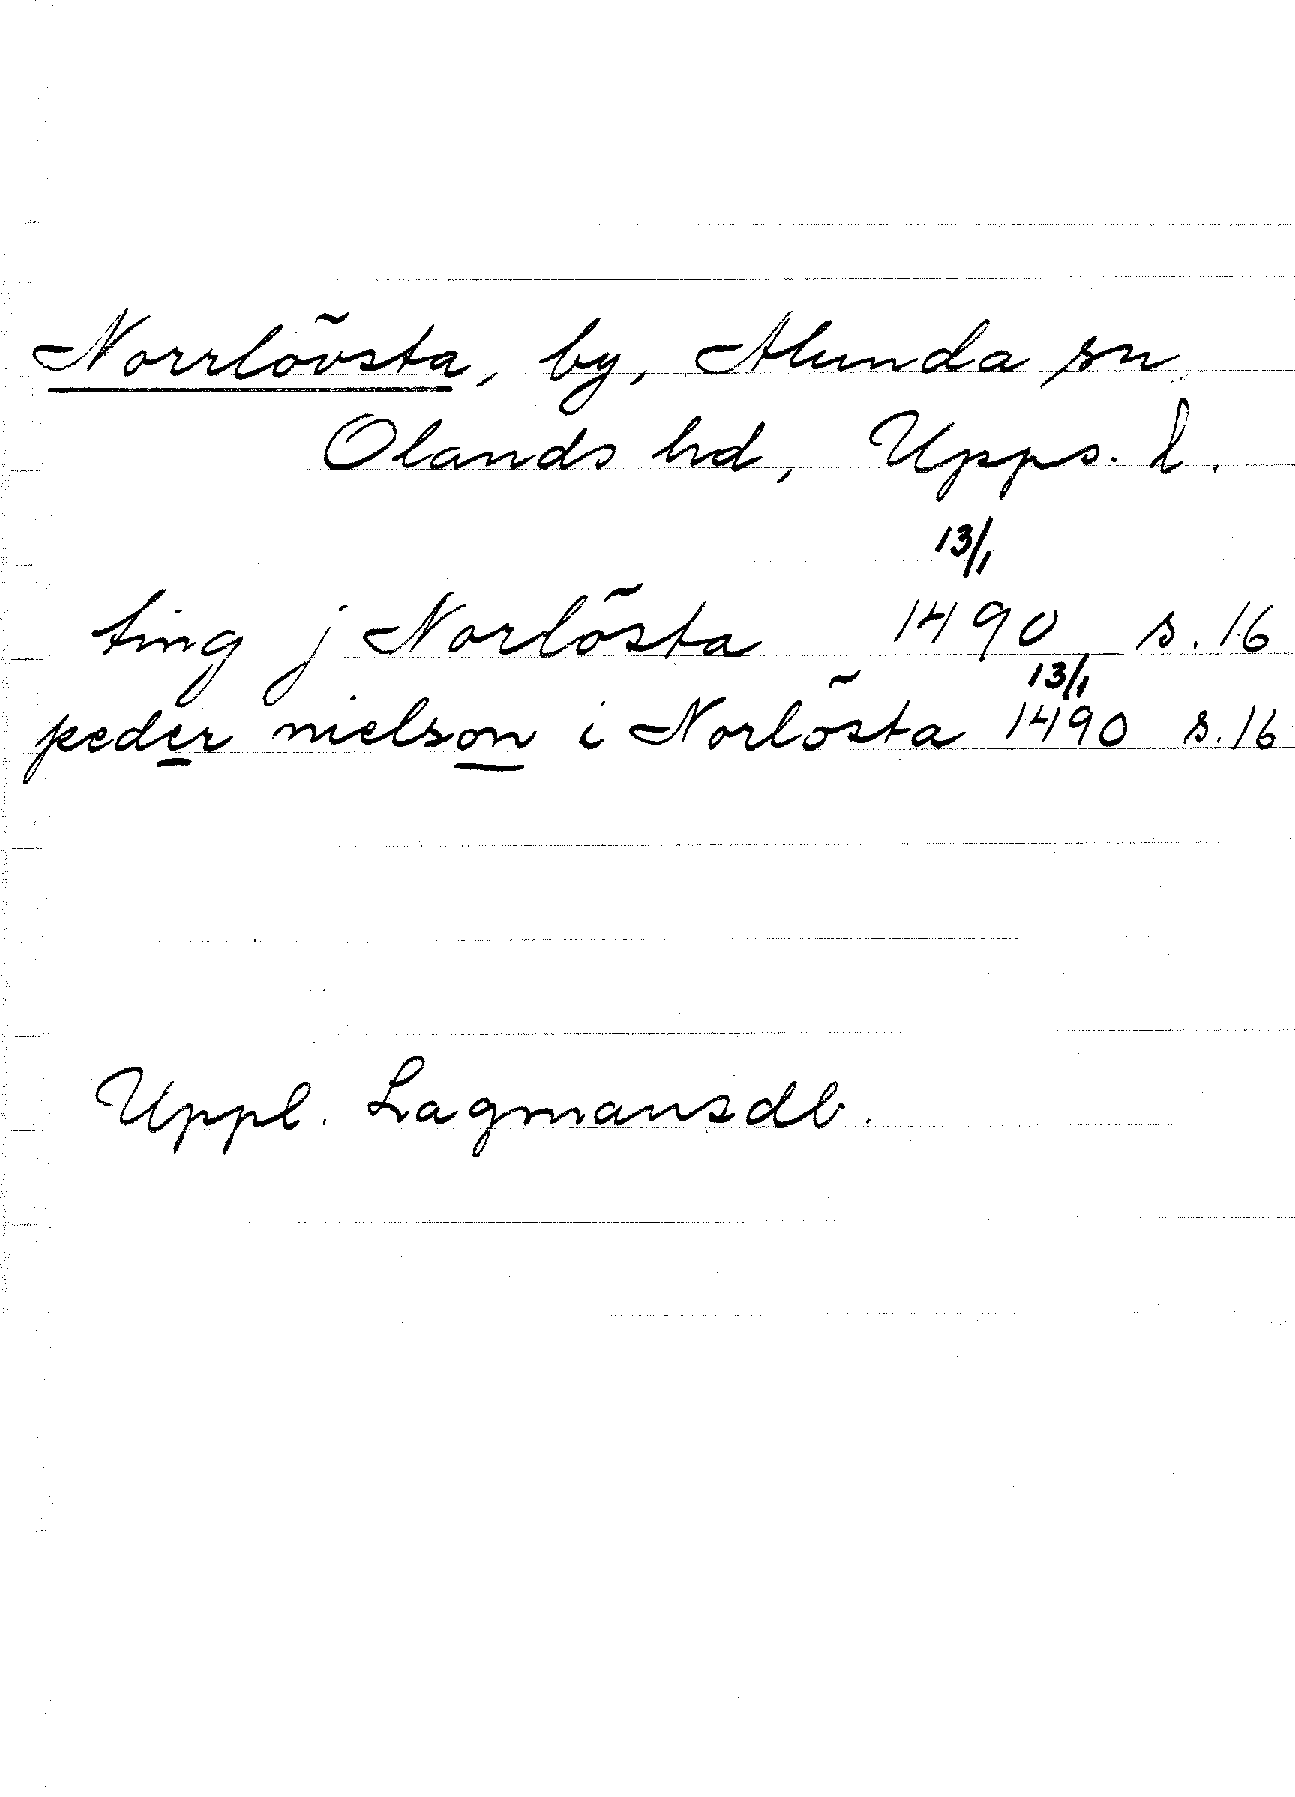 Norrlövsta, by, Alunda sn
Olands hd, Upps. l.
13/1
ting j Norlösta 1490 s. 16
13/1
peder nielson i Norlösta 1490 s. 16
Uppl. Lagmansdb.